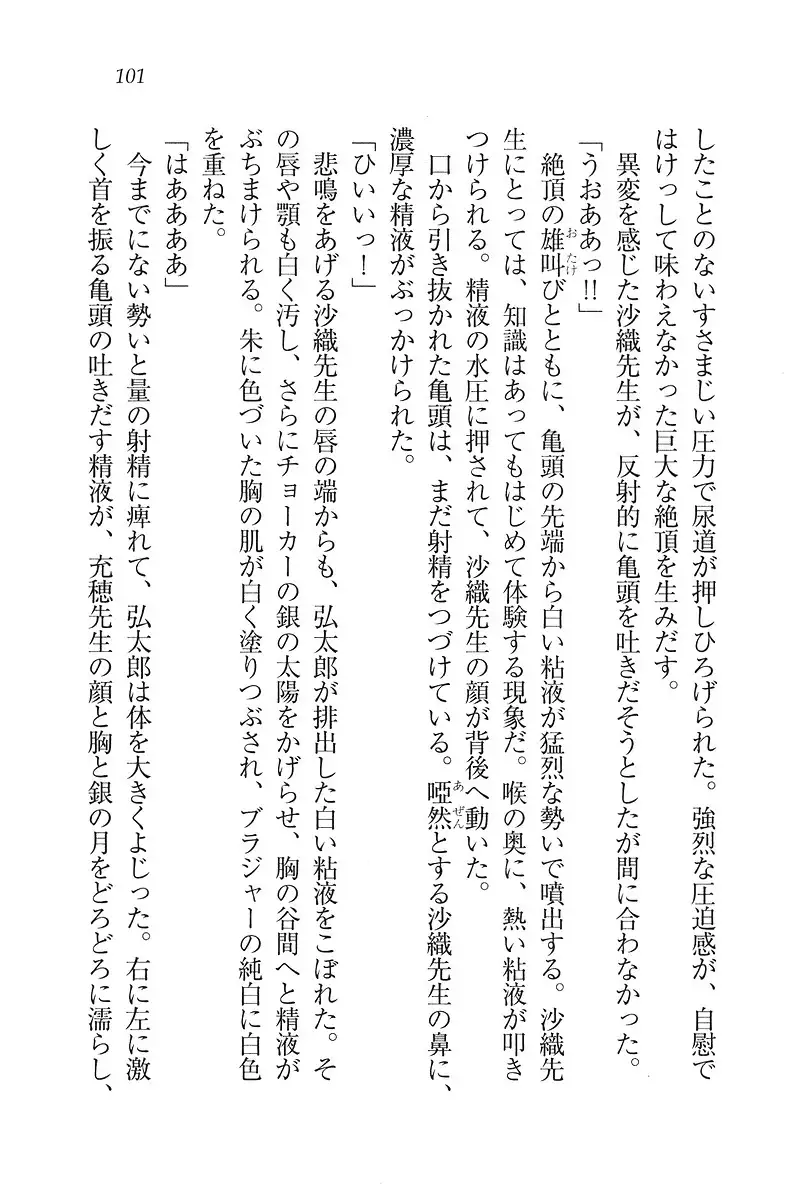 101
したことのないすさまじい圧力で尿道が押しひろげられた。強烈な圧迫感が、自慰で
はけっして味わえなかった巨大な絶頂を生みだす。
異変を感じた沙織先生が、反射的に亀頭を吐きだそうとしたが間に合わなかった。
「うおああっ!!」
絶頂の雄叫びとともに、亀頭の先端から白い粘液が猛烈な勢いで噴出する。沙織先
生にとっては、知識はあってもはじめて体験する現象だ。喉の奥に、熱い粘液が叩き
つけられる。精液の水圧に押されて、沙織先生の顔が背後へ動いた。
口から引き抜かれた亀頭は、まだ射精をつづけている。啞然とする沙織先生の鼻に、
濃厚な精液がぶっかけられた。
「ひいいっ！」
悲鳴をあげる沙織先生の唇の端からも、弘太郎が排出した白い粘液をこぼれた。そ
の唇や顎も白く汚し、さらにチョーカーの銀の太陽をかげらせ、胸の谷間へと精液が
ぶちまけられる。朱に色づいた胸の肌が白く塗りつぶされ、ブラジャーの純白に白色
を重ねた。
「はああああ」
今までにない勢いと量の射精に痺れて、弘太郎は体を大きくよじった。右に左に激
しく首を振る亀頭の吐きだす精液が、充穂先生の顔と胸と銀の月をどろどろに濡らし、